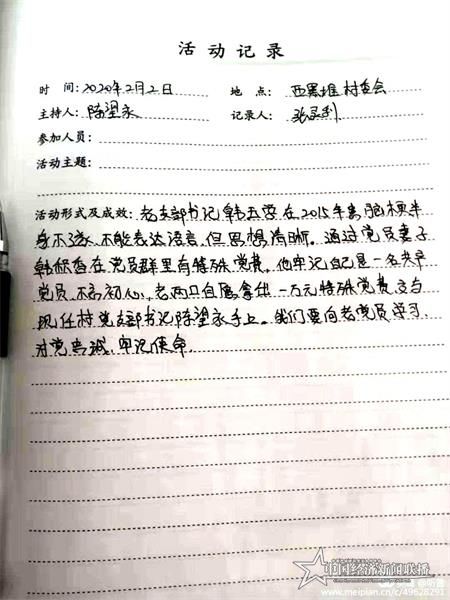 活动记录
时 间: 2020年2月2日 地 点: 西黑堆村委会
主持人: 陈望永 记录人:
参加人员:
活动主题:
活动形式及成效: 老支部书记韩五营在2015年患脑梗半
身不遂,不能表达语言,但思想清晰。通过党员妻子
韩 香在党员群里有特殊党费,他牢记自己是一名共产
党员,不忘初心,老两口自愿拿出一万元特殊党费交与
现任村党支部书记陈望永手上。我们要向老党员学习,
对党忠诚,牢记使命.
中国经济新闻联播
www.meipian.cn/c/49628291